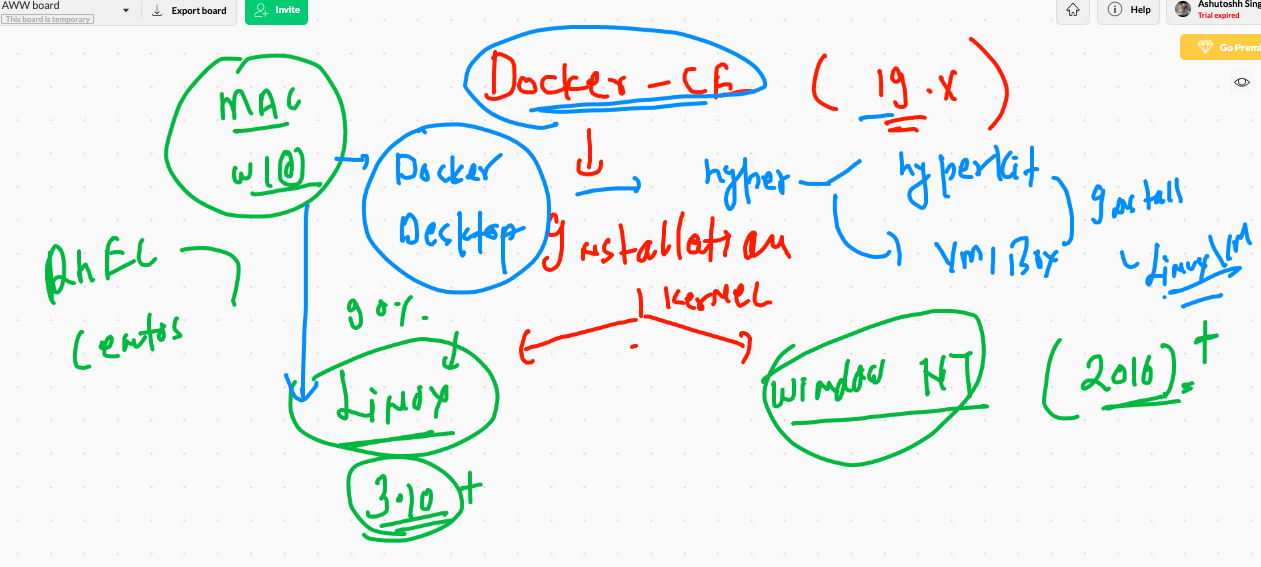 AWW board
This board is temporary
Export board
Invite
Help
Ashutoshh Sing
Trial expired
Go Premi
MAC
W10
Docker - CE
(19.x)
Docker
Desktop
hyper
hyperkit
VM | Box
Install
Linux VM
Installation
RhEL
Centos
90%
KerNEL
LiNUX
3.10 +
Window NT
(2016). +